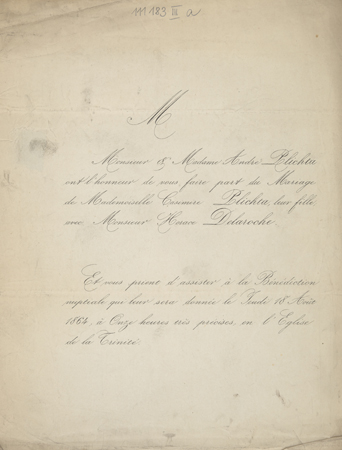 111183 III a
M
Monsieur & Madame André Plichta
ont l'honneur de vous faire part du Mariage
de Mademoiselle Casimire Plichta, leur fille
avec Monsieur Horace Delaroche.
Et vous prient d'assister à la Bénédiction
nuptiale qui leur sera donnée le Jeudi 18 Août
1864, à Onze heures très précises, en l'Eglise
de la Trinité.